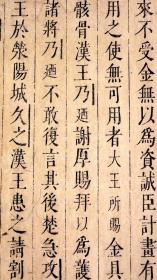 來不受金無以為資誠臣計畫有
用之使無可用者大王所賜金具
骸骨漢王乃廼謝厚賜拜以為護
諸將乃廼不敢復言其後楚急攻
王於滎陽城久之漢王患之請割